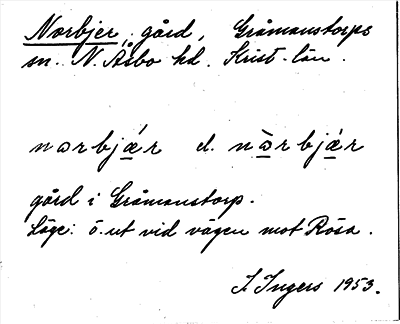 Norbjer, gård, Gråmanstorps
sn. N. Åsbo hd. Krist. län.
norbjǽr el. nòrbjæ̀r
gård i Gråmanstorp.
Läge: ö. ut vid vägen mot Rösa.
I. Ingers 1953.